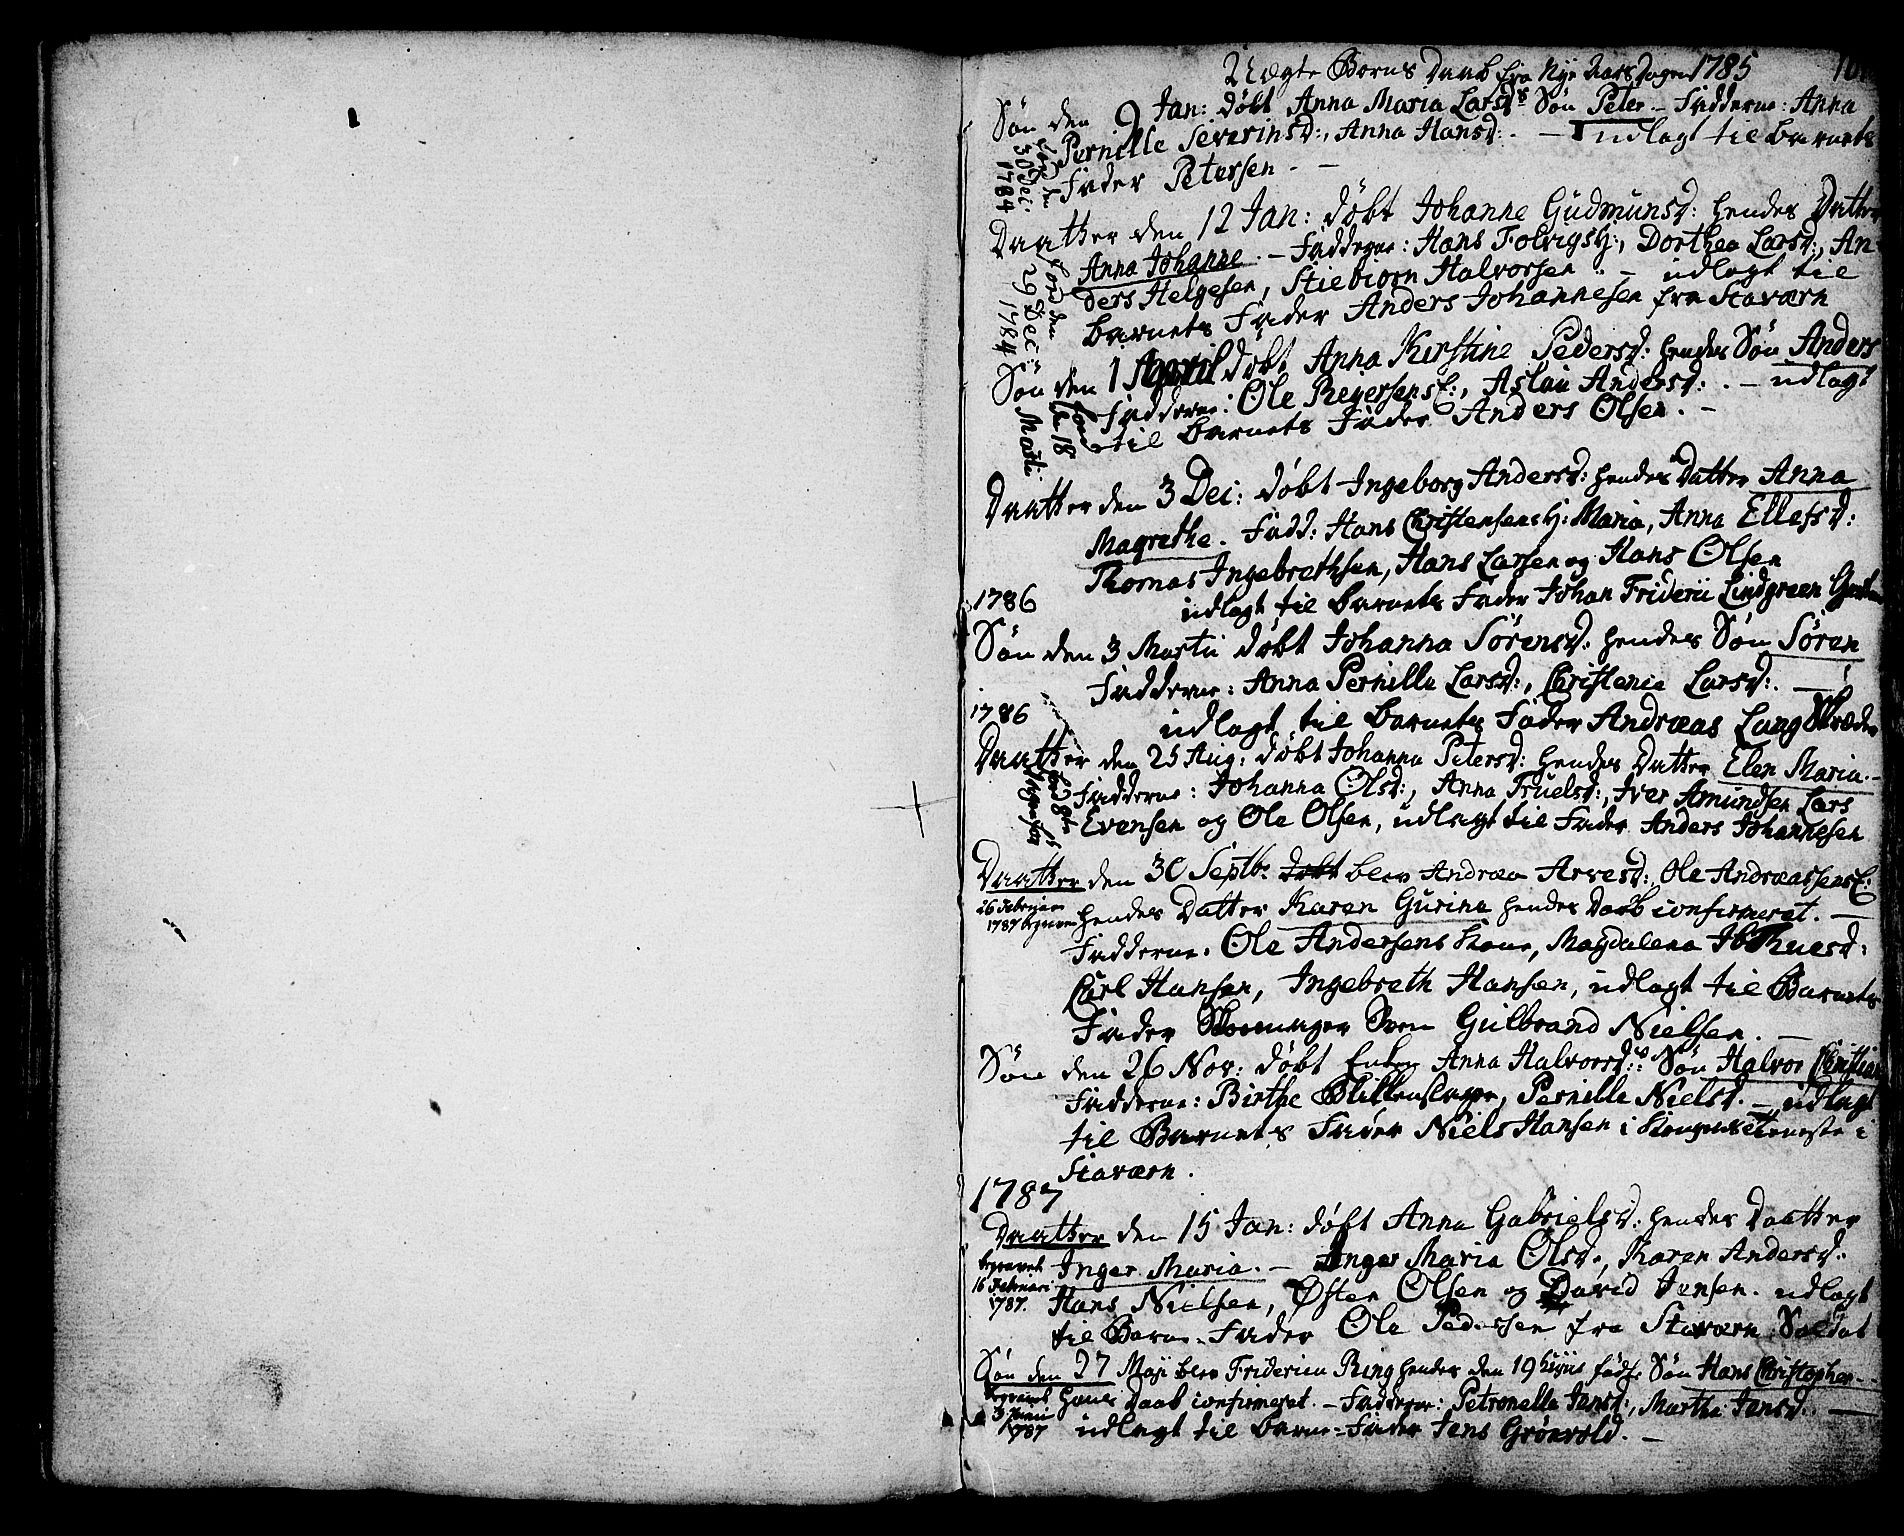 Uægte Børns Daab fra Nye Aars Dagen 1785
Søn den 9 Jan: døbt Anna Maria Larsd:s Søn Peter – Fadderne: Anna
Pernille Severinsd:, Anna Hansd: – udlagt til barnets
Fader Petersen –
fød den
30 Dec:
1784
Daatter den 12 Jan: døbt Johanne Gudmunsd: hendes Datter
Anna Johanne. – Fadderne: Hans Folvigs H:, Dorthea Larsd:, An-
ders Helgesen, Stiebiørn Halvorsen. – udlagt til
barnets Fader Anders Johannesen fra Staværn
fød den
29 Dec:
1784
Søn den 1 April døbt Anna Kirstine Pedersd: hendes Søn Anders
Fadderne: Ole Reyersens, Aslau Andersd: . – udlagt
til barnets Fader Anders Olsen. –
fød
den 18
Martii
Daatter den 3 Dec: døbt Ingeborg Andersd: hendes Datter Anna
Magrethe. Fadd: Hans Christensens H: Maria, Anna Ellefsd:
Thomas Ingebrethsen, Hans Larsen og Hans Olsen
1786
udlagt til barnets Fader Johan Friderii Lindgreen
Søn den 3 Martii døbt Johanna Sørensd: hendes Søn Søren
Fadderne: Anna Pernilla Larsd:, Christence Larsd:. –
1786
udlagt til barnets Fader Andræas Lang Skræder
Daatter den 25 Aug: døbt Johanna Petersd: hendes Datter Elen Maria. –
Fadderne: Johanna Olsd:, Anna Truelsd:, Iver Amundsen Lars
Evensen og Ole Olsen, udlagt til Fader Anders Johannesen
Daatter den 30 Septb: døbt blev Andrea Arvesd:, Ole Andræassens
26 Februari
1787 begraven
hendes Datter Karen Gurina hendes Daab confirmeret. –
Fadderne: Ole Andersens Kone, Magdalena Ib Thuesd:
Carl Hansen, Ingebreth Hansen, udlagt til Barnets
Fader Skomager Sven Gulbrand Nielsen. –
Søn den 26 Nov: døbt Enken Anna Halvorsd:s Søn Halvor Christian
Fadderne: Birthe Slikkenslager, Pernille Nielsd. – udlagt
til Barnets Fader Niels Hansen i Kongens Tieneste i
Staværn.
1787
Daatter den 15 Jan: døbt Anna Gabrielsd: hendes Daatter
begravet
16 Februari
1787.
Inger Maria. – Inger Maria Olsd:, Karen Andersd:
Hans Nielsen, Østen Olsen og David Jensen. udlagt
til Barne-Fader Ole Pedersen fra Staværn Soldat
Søn den 27 Maji blev Friderica Ring hendes den 19 hujus fødte Søn Hans Christopher –
begravet
3 Junii
1787
hans Daab confirmeret. – Fadderne: Petronella Jansd:, Martha Jansd: –
udlagt til barne-Fader Jens Grønvold. –